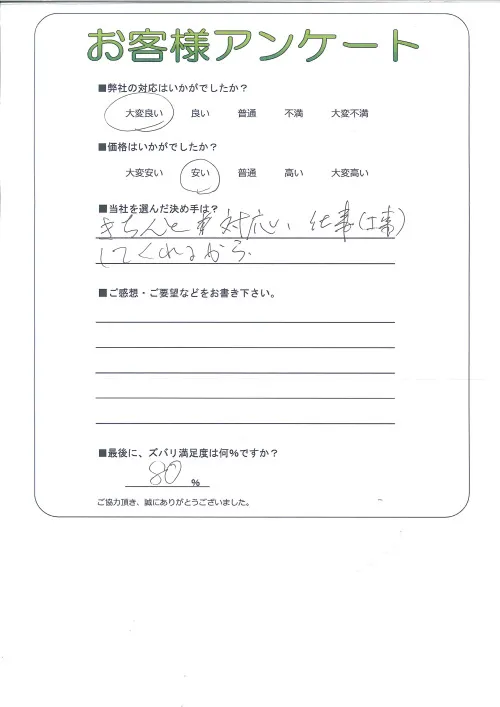 お客様アンケート
■弊社の対応はいかがでしたか？
大変良い 良い 普通 不満 大変不満
■価格はいかがでしたか？
大変安い 安い 普通 高い 大変高い
■当社を選んだ決め手は？
きちんと 対応い、仕事(工事)
してくれるから
■ご感想・ご要望などをお書き下さい。
■最後に、ズバリ満足度は何％ですか？
80 ％
ご協力頂き、誠にありがとうございました。